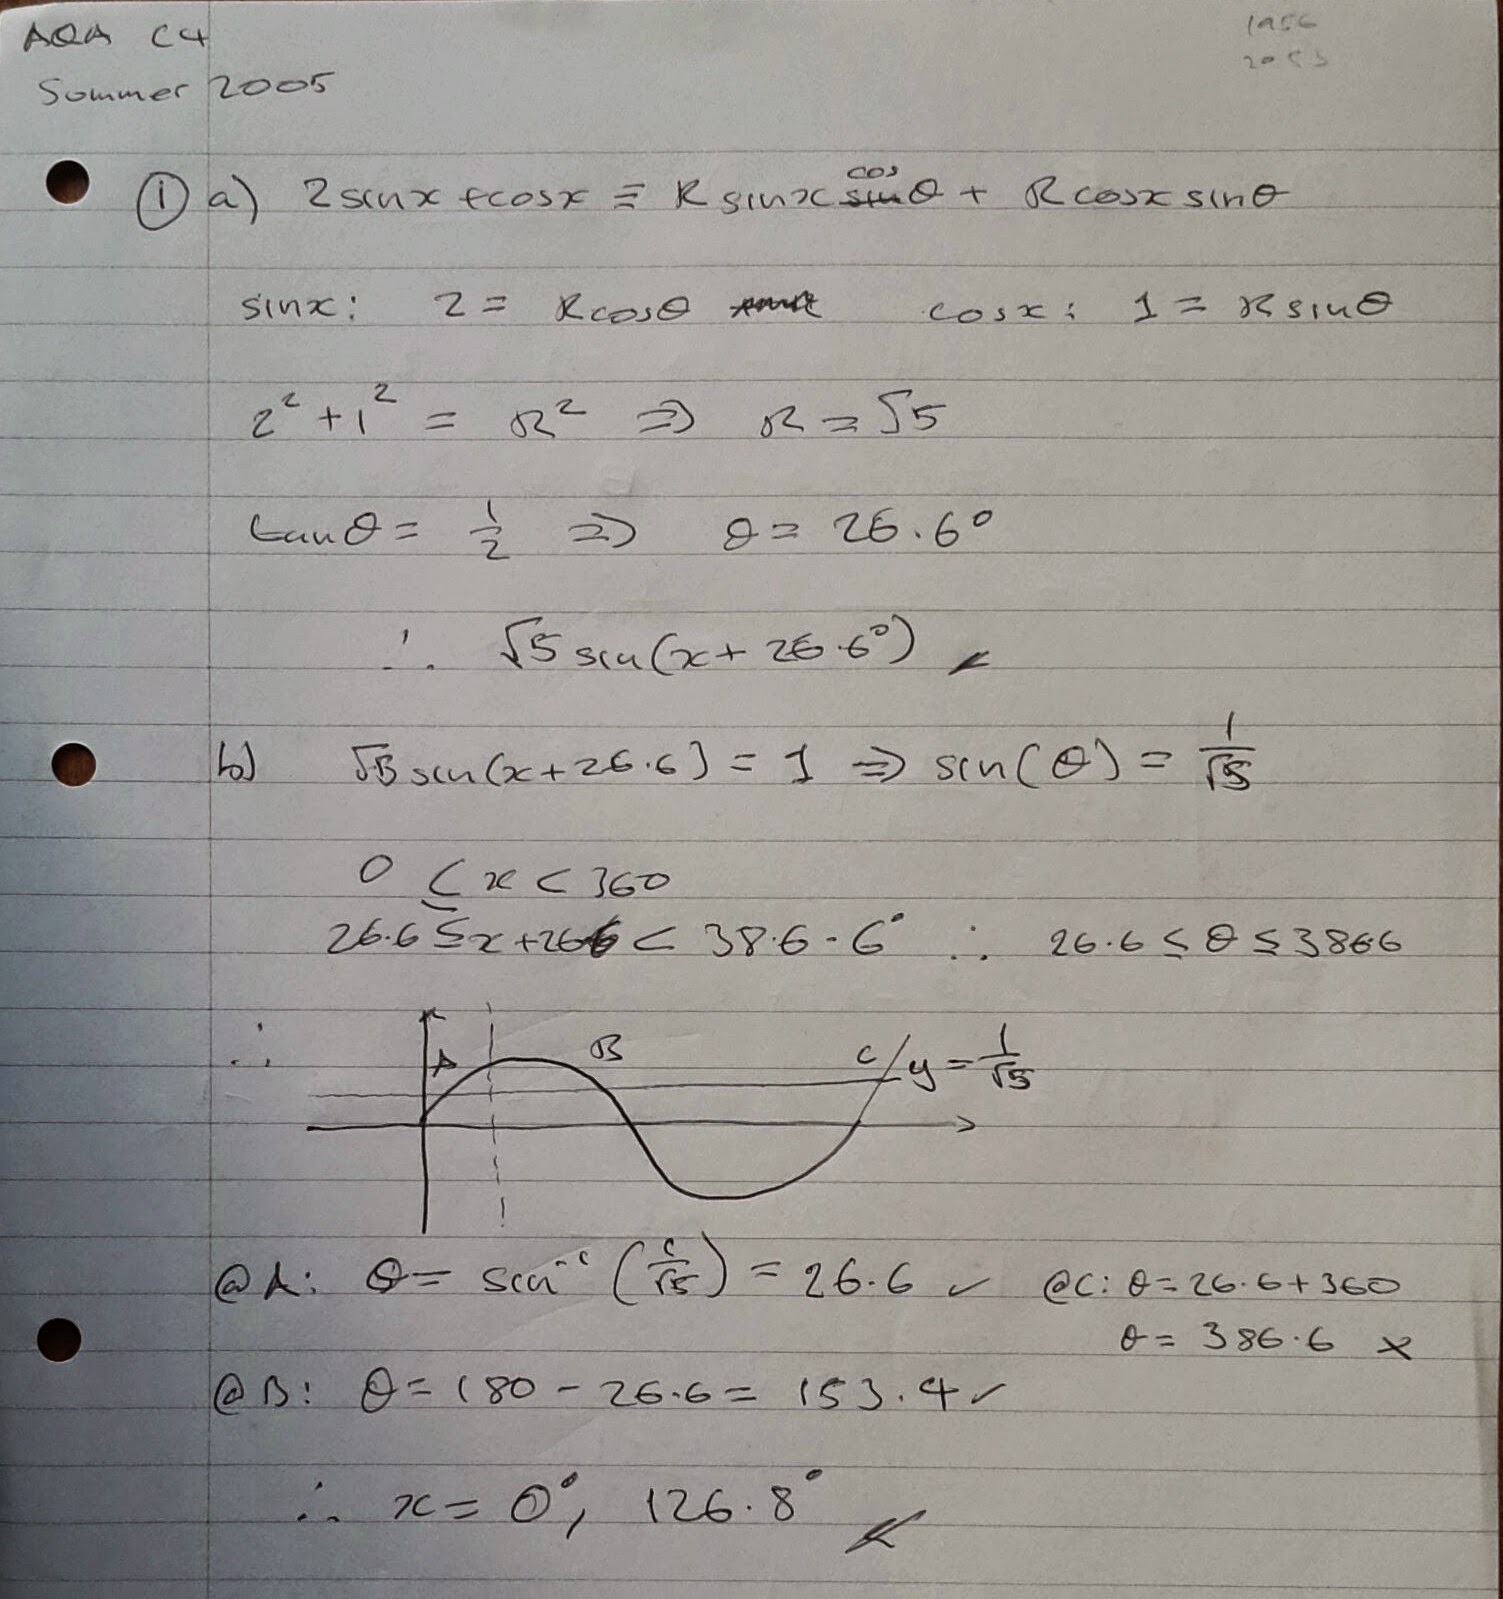 AQA C4
1956
Summer 2005
① a) 2sinx + cosx ≡ R sinx cosθ + R cosx sinθ
sinx: 2 = Rcosθ cosx: 1 = R sinθ
2² + 1² = R² ⇒ R = √5
tanθ = 1/2 ⇒ θ = 26.6°
∴ √5 sin(x + 26.6°)
b) √5 sin(x+26.6) = 1 ⇒ sin(θ) = 1/√5
0 ≤ x < 360
26.6 ≤ x+26.6 < 38.6.6° ∴ 26.6 ≤ θ ≤ 386.6
∴ A B C y = 1/√5
@A: θ = sin⁻¹(1/√5) = 26.6 ✓ @C: θ = 26.6+360
θ = 386.6 ×
@B: θ = 180 - 26.6 = 153.4 ✓
∴ x = 0°, 126.8°